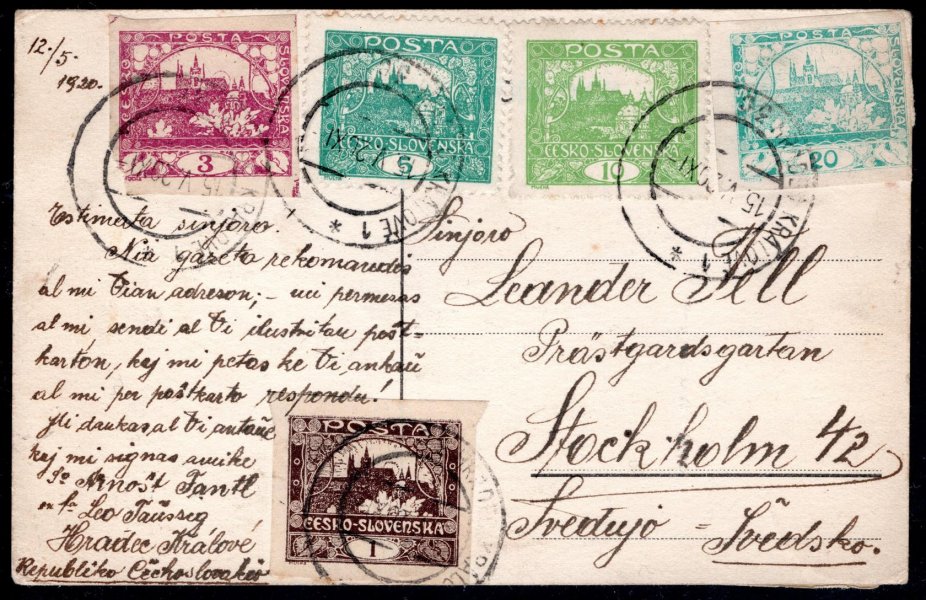 12./5.
1920.
POSTA
ČESKO
SLOVENSKÁ
3
POSTA
5
ČESKO-SLOVENSKÁ
POSTA
10
ČESKO-SLOVENSKÁ
POSTA
SLOVENSKÁ
20
KRÁLOVÉ 1 *
15.V.20.XI
KRÁLOVÉ 1 *
Estimata sinjoro.
Nia gazeto rekomandis
al mi Vian adreson, – uci permesas
al mi sendi al Vi ilustritan post-
karton, kaj mi petas ke Vi ankaŭ
al mi per poŝtkarto respondu!
Mi dankas, al Vi antaŭe
kaj mi signas amike
Arnošt Fantl
Leo Taüsseg
Hradec Králové
Republiko Cechoslovakio
Sinjoro
Leander Tell
Prästgardsgartan
Stockholm 42
Svedujo = Švedsko.
POSTA
ČESKO-SLOVENSKÁ
1